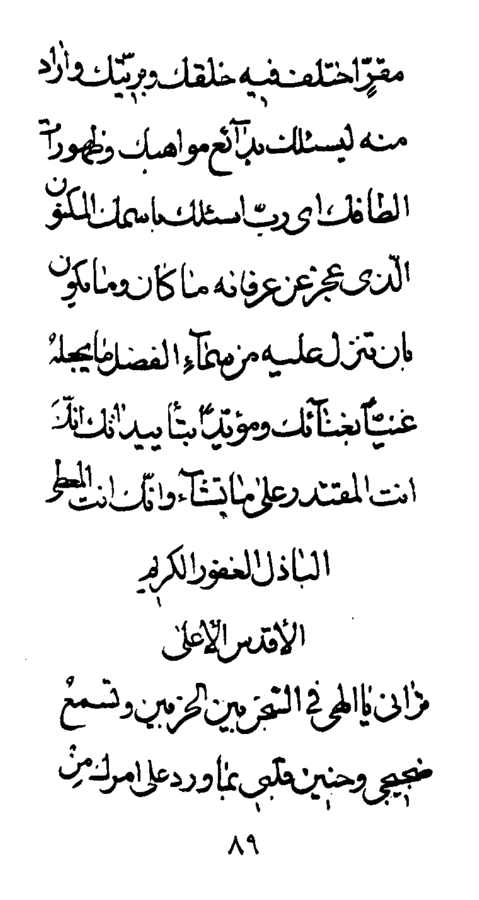 مقرّاً اختلف فيه خلقك وبريّتك واراد
منه ليسئلك بدآئع مواهبك وظهورات
الطافك اى ربّ اسئلك باسمك المكنون
الّذى عجز عن عرفانه ما كان وما يكون
بان تنزل عليه من سمآء الفضل ما يجعله
غنيّاً بغنآئك ومؤيّداً بتأييداتك انّك
انت المقتدر على ما تشآء وانّك انت المعطى
الباذل الغفور الكريم
الأقدس الأعلى
ترانى يا الهى فى السّجن بين الحزبين وتسمع
ضجيجى وحنين قلبى بما ورد على امرك من
٨٩